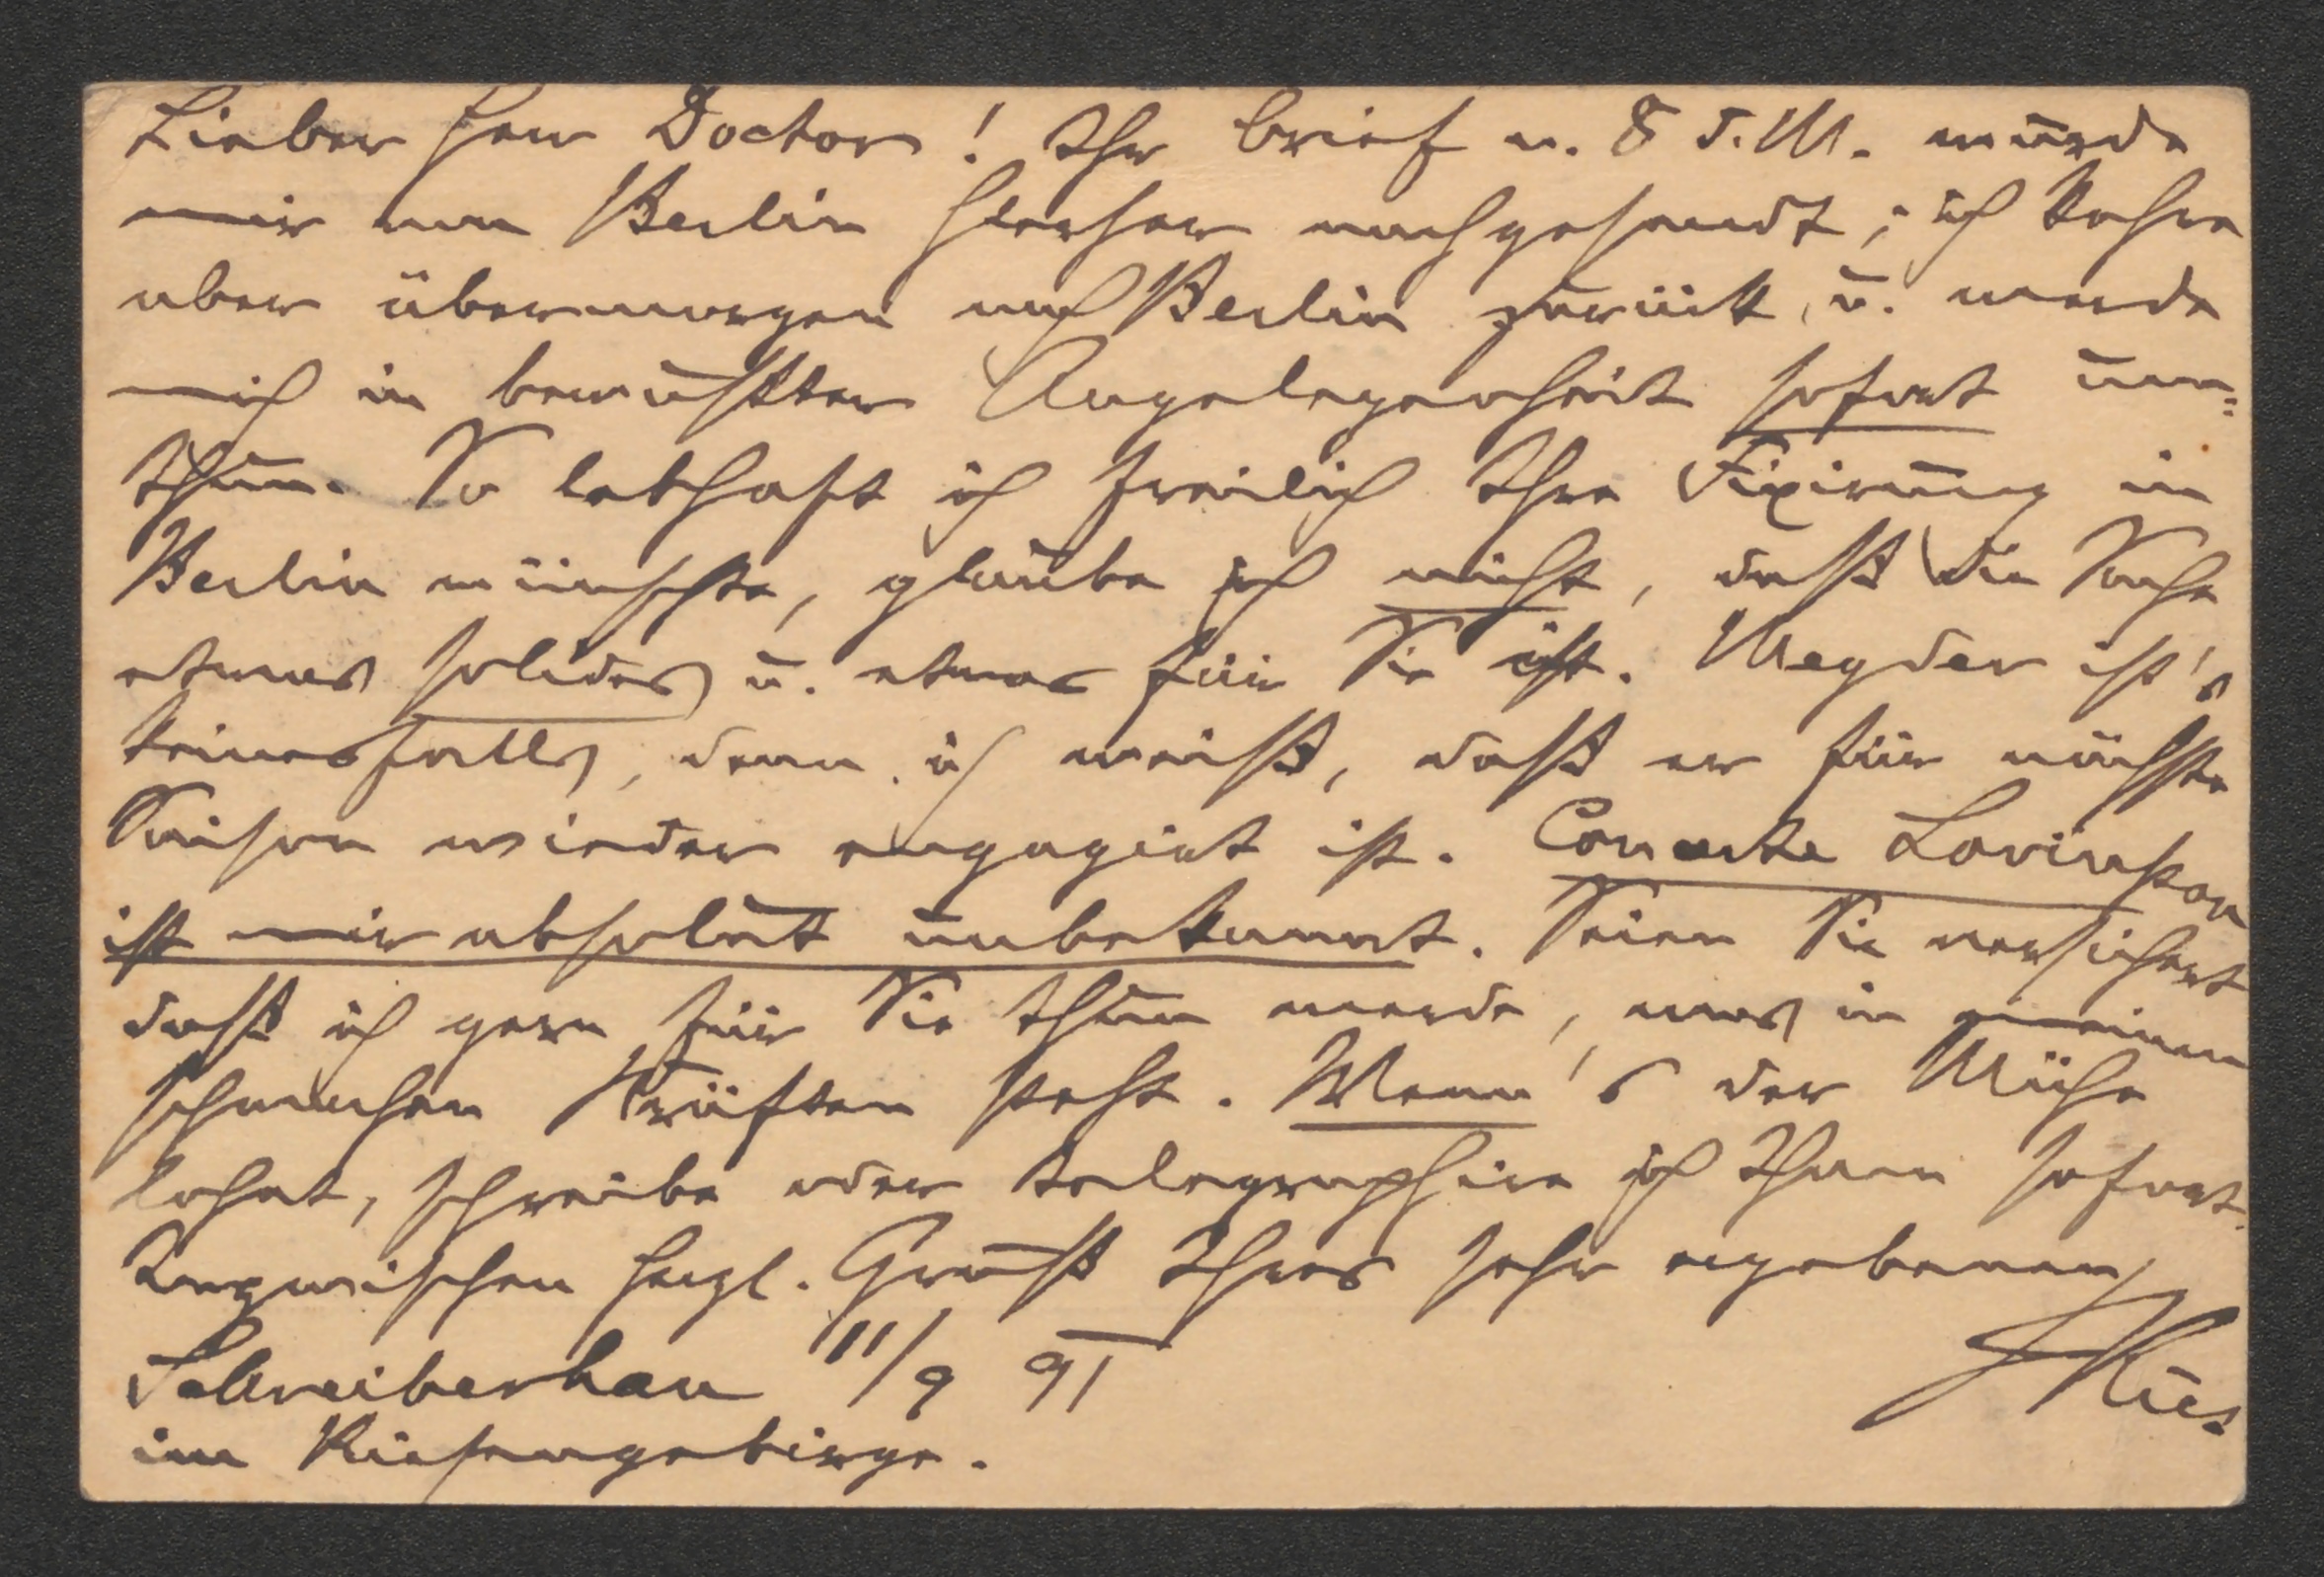 Lieber Herr Doctor! Ihr Brief v. 8 d. M. wurde
mir von Berlin hierher nachgesandt; ich kehre
aber übermorgen nach Berlin zurück, u. werde
mich in bewußter Angelegenheit sofort um-
thun. So lebhaft ich freilich Ihre Fixirung in
Berlin wünschte, glaube ich nicht, daß die Sache
etwas solides u. etwas für Sie ist. Meyder ist's
keinesfalls, denn ich weiß, daß er für nächste
Saison wieder engagirt ist. Concerte Lovinson
ist mir absolut unbekannt. Seien Sie versichert
daß ich gern für Sie thun werde, was in meinen
schwachen Kräften steht. Wenn's der Mühe
lohnt, schreibe oder telegraphire ich Ihnen sofort.
Inzwischen herzl. Gruß Ihres sehr ergebenen
Schreiberhau 11/9 91
im Riesengebirge.